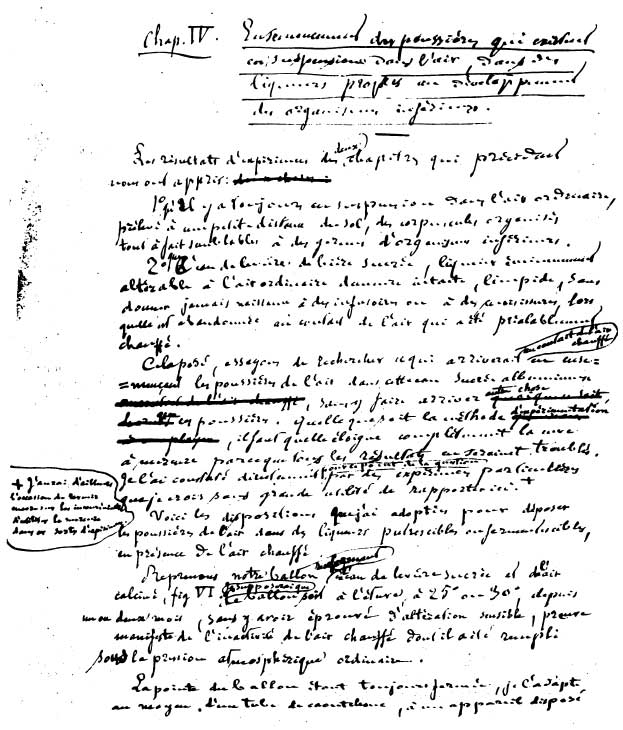 Chap. IV. Ensemencement des poussières qui existent
en suspension dans l'air, dans des
liqueurs propres au développement
des organismes inférieurs.
Les résultats d'expériences des deux chapitres qui précèdent
nous ont appris:
1° qu'il y a toujours en suspension dans l'air ordinaire,
prélevé à une petite distance du sol, des corpuscules organisés
tout à fait semblables à des germes d'organismes inférieurs.
2° que l'eau de levûre de bière sucrée, liqueur éminemment
altérable à l'air ordinaire demeure intacte, limpide, sans
donner jamais naissance à des infusoires ou à des moisissures, lors
qu'elle est abandonnée au contact de l'air qui a été préalablement
chauffé.
Cela posé, essayons de rechercher ce qui arriverait en ense=
au contact de l'air chauffé
=mençant les poussières de l'air dans cette eau sucrée albumineuse
, sans y faire arriver autre chose
les poussières. Quelle que soit la méthode d'expérimentation
, il faut qu'elle éloigne complètement la cuve
à mercure parce que tous les résultats en seraient troublés.
Je l'ai constaté directement par des expériences particulières
que je crois sans grande utilité de rapporter ici. +
+ J'aurai d'ailleurs
l'occasion de revenir
sur les inconvénients
du mercure
dans ces sortes d'expér
Voici les dispositions que j'ai adoptées pour disposer
les poussières de l'air dans des liqueurs putrescibles ou fermentescibles,
en présence de l'air chauffé.
Reprenons notre ballon renfermant eau de levûre sucrée et de l'air
calciné, fig VI. le ballon soit à l'étuve, à 25° ou 30°, depuis
un ou deux mois, sans y avoir éprouvé d'altération sensible, preuve
manifeste de l'inactivité de l'air chauffé dont il a été rempli
sous la pression atmosphérique ordinaire.
La pointe du ballon étant toujours fermée, je l'adapte
au moyen d'un tube de caoutchouc, à un appareil disposé